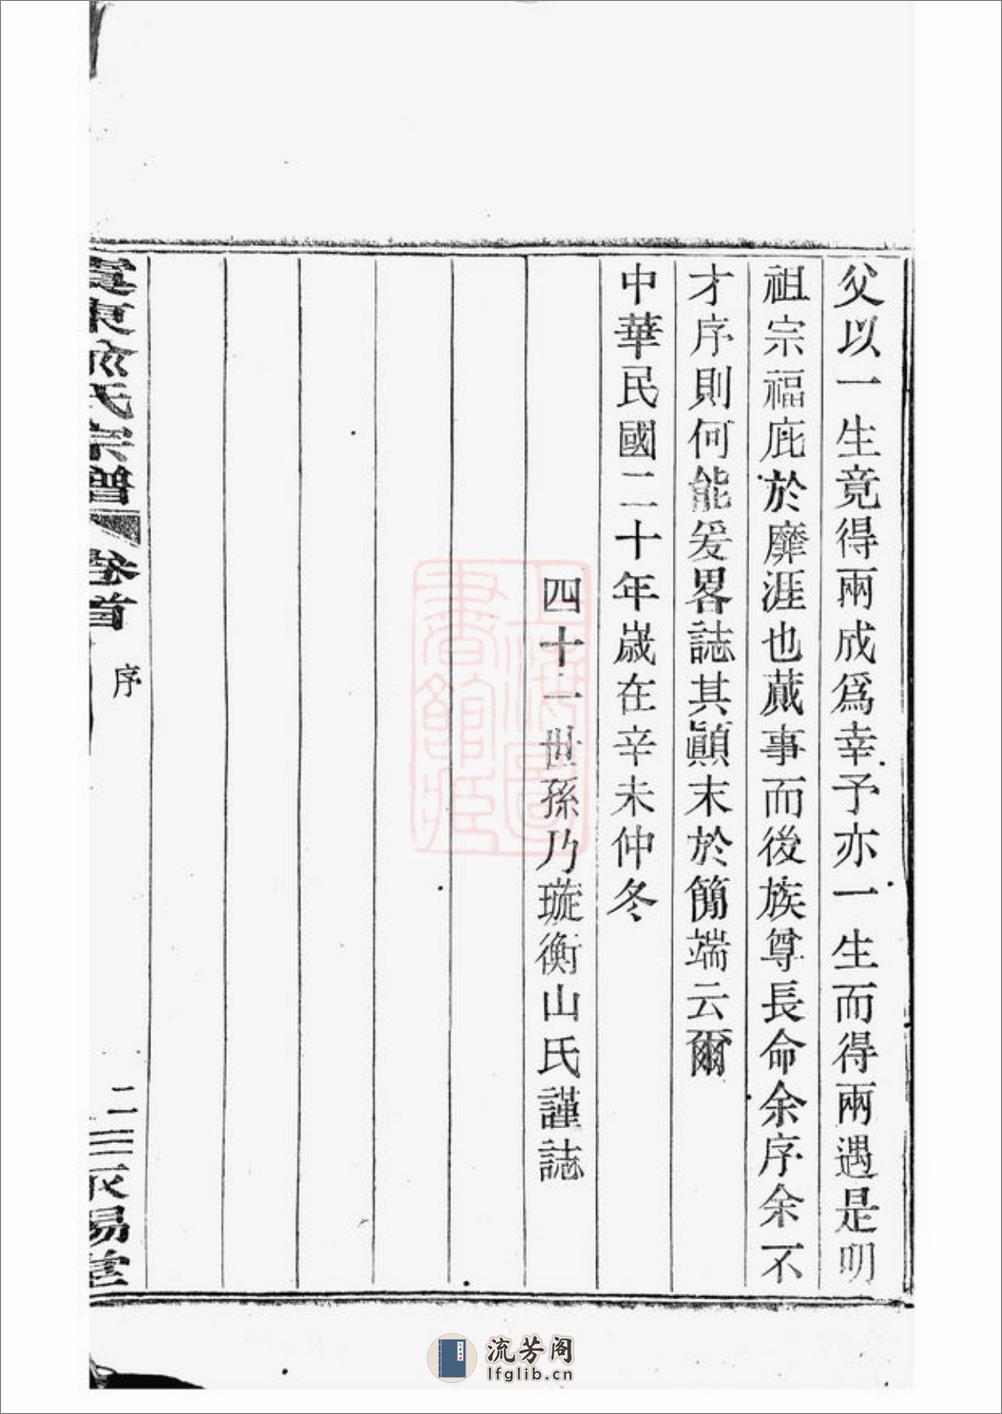 父以一生竟得兩成爲幸予亦一生而得兩遇是叨
祖宗福庇於靡涯也蕆事而後族尊長命余序余不
才序則何能爰畧誌其顚末於簡端云爾
中華民國二十年歲在辛未仲冬
四十一世孫乃璇衡山氏謹誌
東俞氏宗譜
卷首
序
二
易堂
上海圖書館藏
流芳阁
lfglib.cn